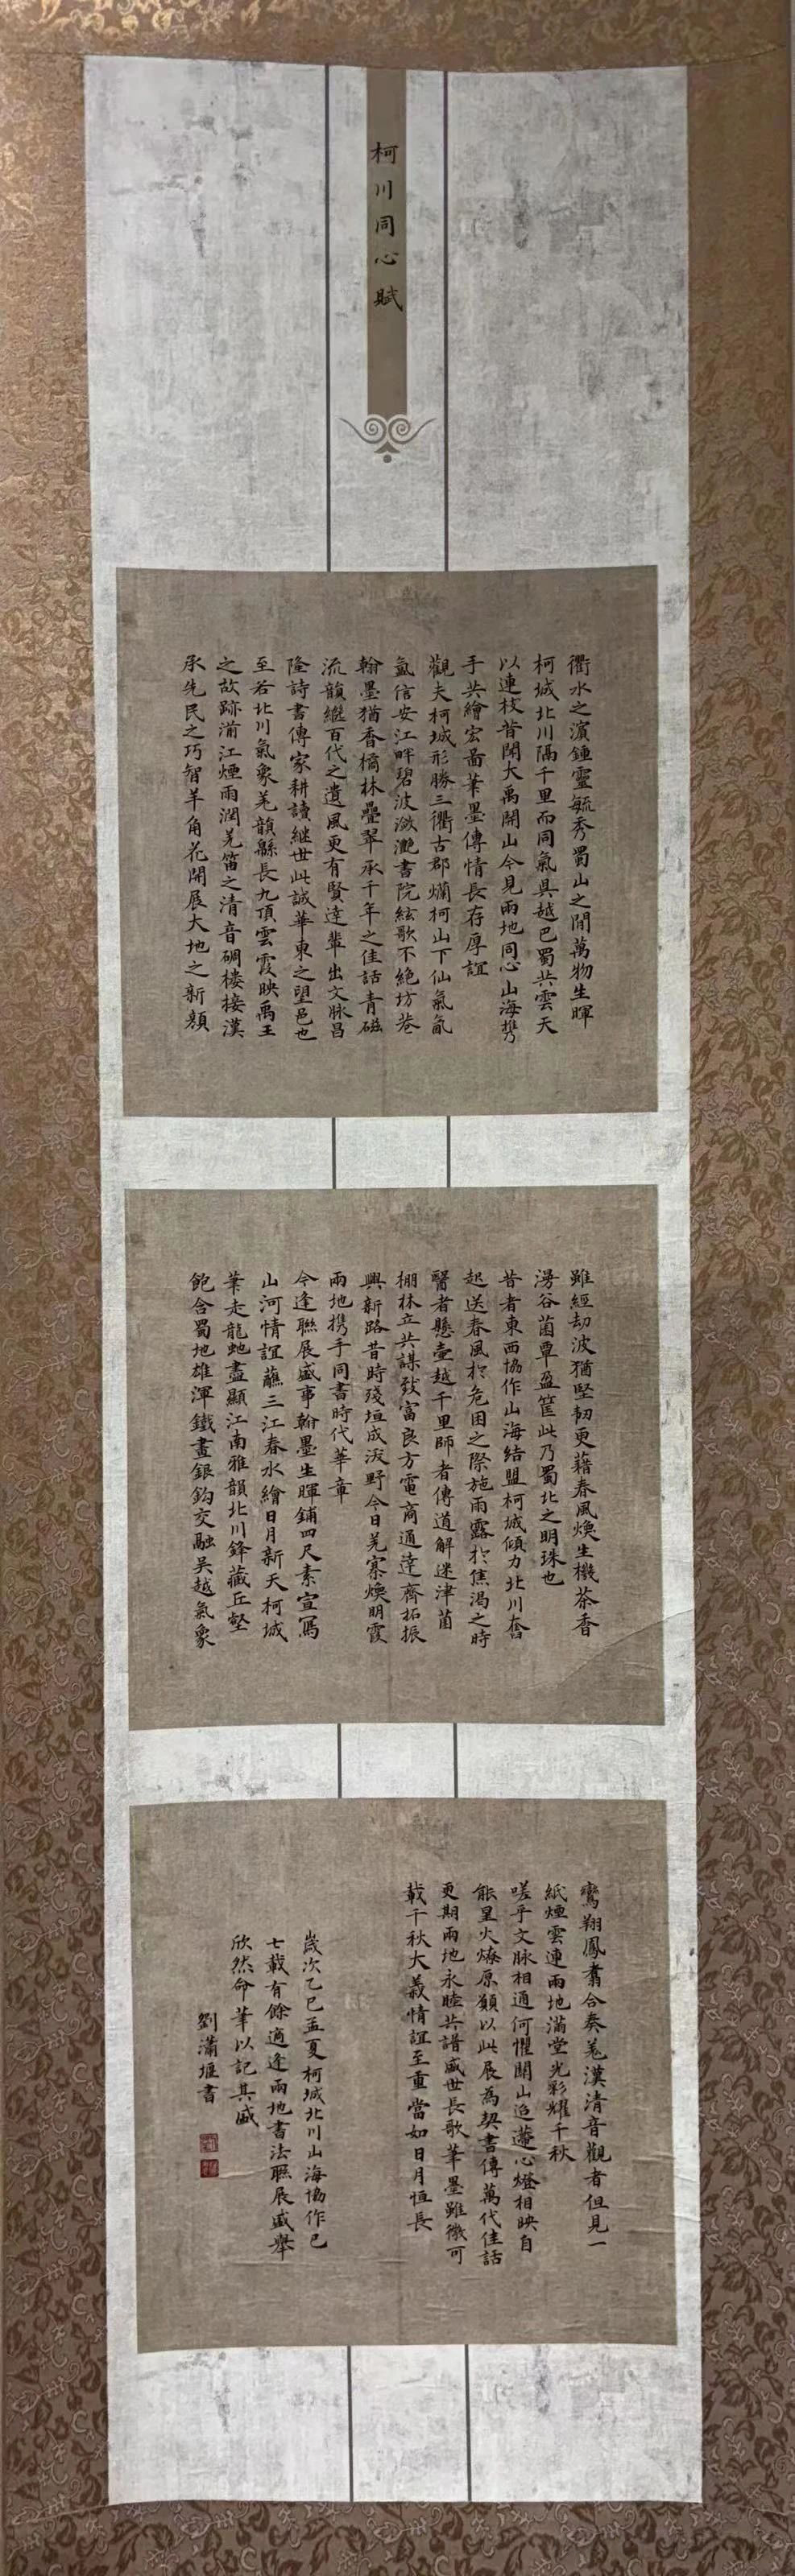 柯川同心賦
衢水之濱鍾靈毓秀蜀山之間萬物生暉
柯城北川隔千里而同氣具越巴蜀共雲天
以連枝昔聞大禹開山今見兩地同心山海攜
手共繪宏圖筆墨傳情長存厚誼
觀夫柯城形勝三衢古郡爛柯山下仙氣氤
氳信安江畔碧波瀲灧書院絃歌不絕坊巷
翰墨猶香橘林疊翠承千年之佳話青磁
流韻繼百代之遺風更有賢達輩出文脉昌
隆詩書傳家耕讀繼世此誠華東之望邑也
至若北川氣象羌韻緜長九頂雲霞映禹王
之故跡湔江煙雨潤羌笛之清音碉樓接漢
承先民之巧智羊角花開展大地之新顏
雖經劫波猶堅韌更藉春風煥生機茶香
漫谷菌蕈盈筐此乃蜀北之明珠也
昔者東西協作山海結盟柯城傾力北川奮
起送春風於危困之際施雨露於焦渴之時
醫者懸壺越千里師者傳道解迷津菌
棚林立共謀致富良方電商通達齊拓振
興新路昔時殘垣成沃野今日羌寨煥明霞
兩地携手同書時代華章
今逢聯展盛事翰墨生暉鋪四尺素宣寫
山河情誼蘸三江春水繪日月新天柯城
筆走龍虵盡顯江南雅韻北川鋒藏丘壑
飽含蜀地雄渾鐵畫銀鈎交融吳越氣象
鸞翔鳳翥合奏羌漢清音觀者但見一
紙煙雲連兩地滿堂光彩耀千秋
嗟乎文脉相通何懼關山迢遞心燈相映自
能星火燎原願以此展為契書傳萬代佳話
更期兩地永睦共譜盛世長歌筆墨雖微可
載千秋大義情誼至重當如日月恒長
歲次乙巳孟夏柯城北川山海協作已
七載有餘適逢兩地書法聯展盛舉
欣然命筆以記其盛
劉瀟堰書